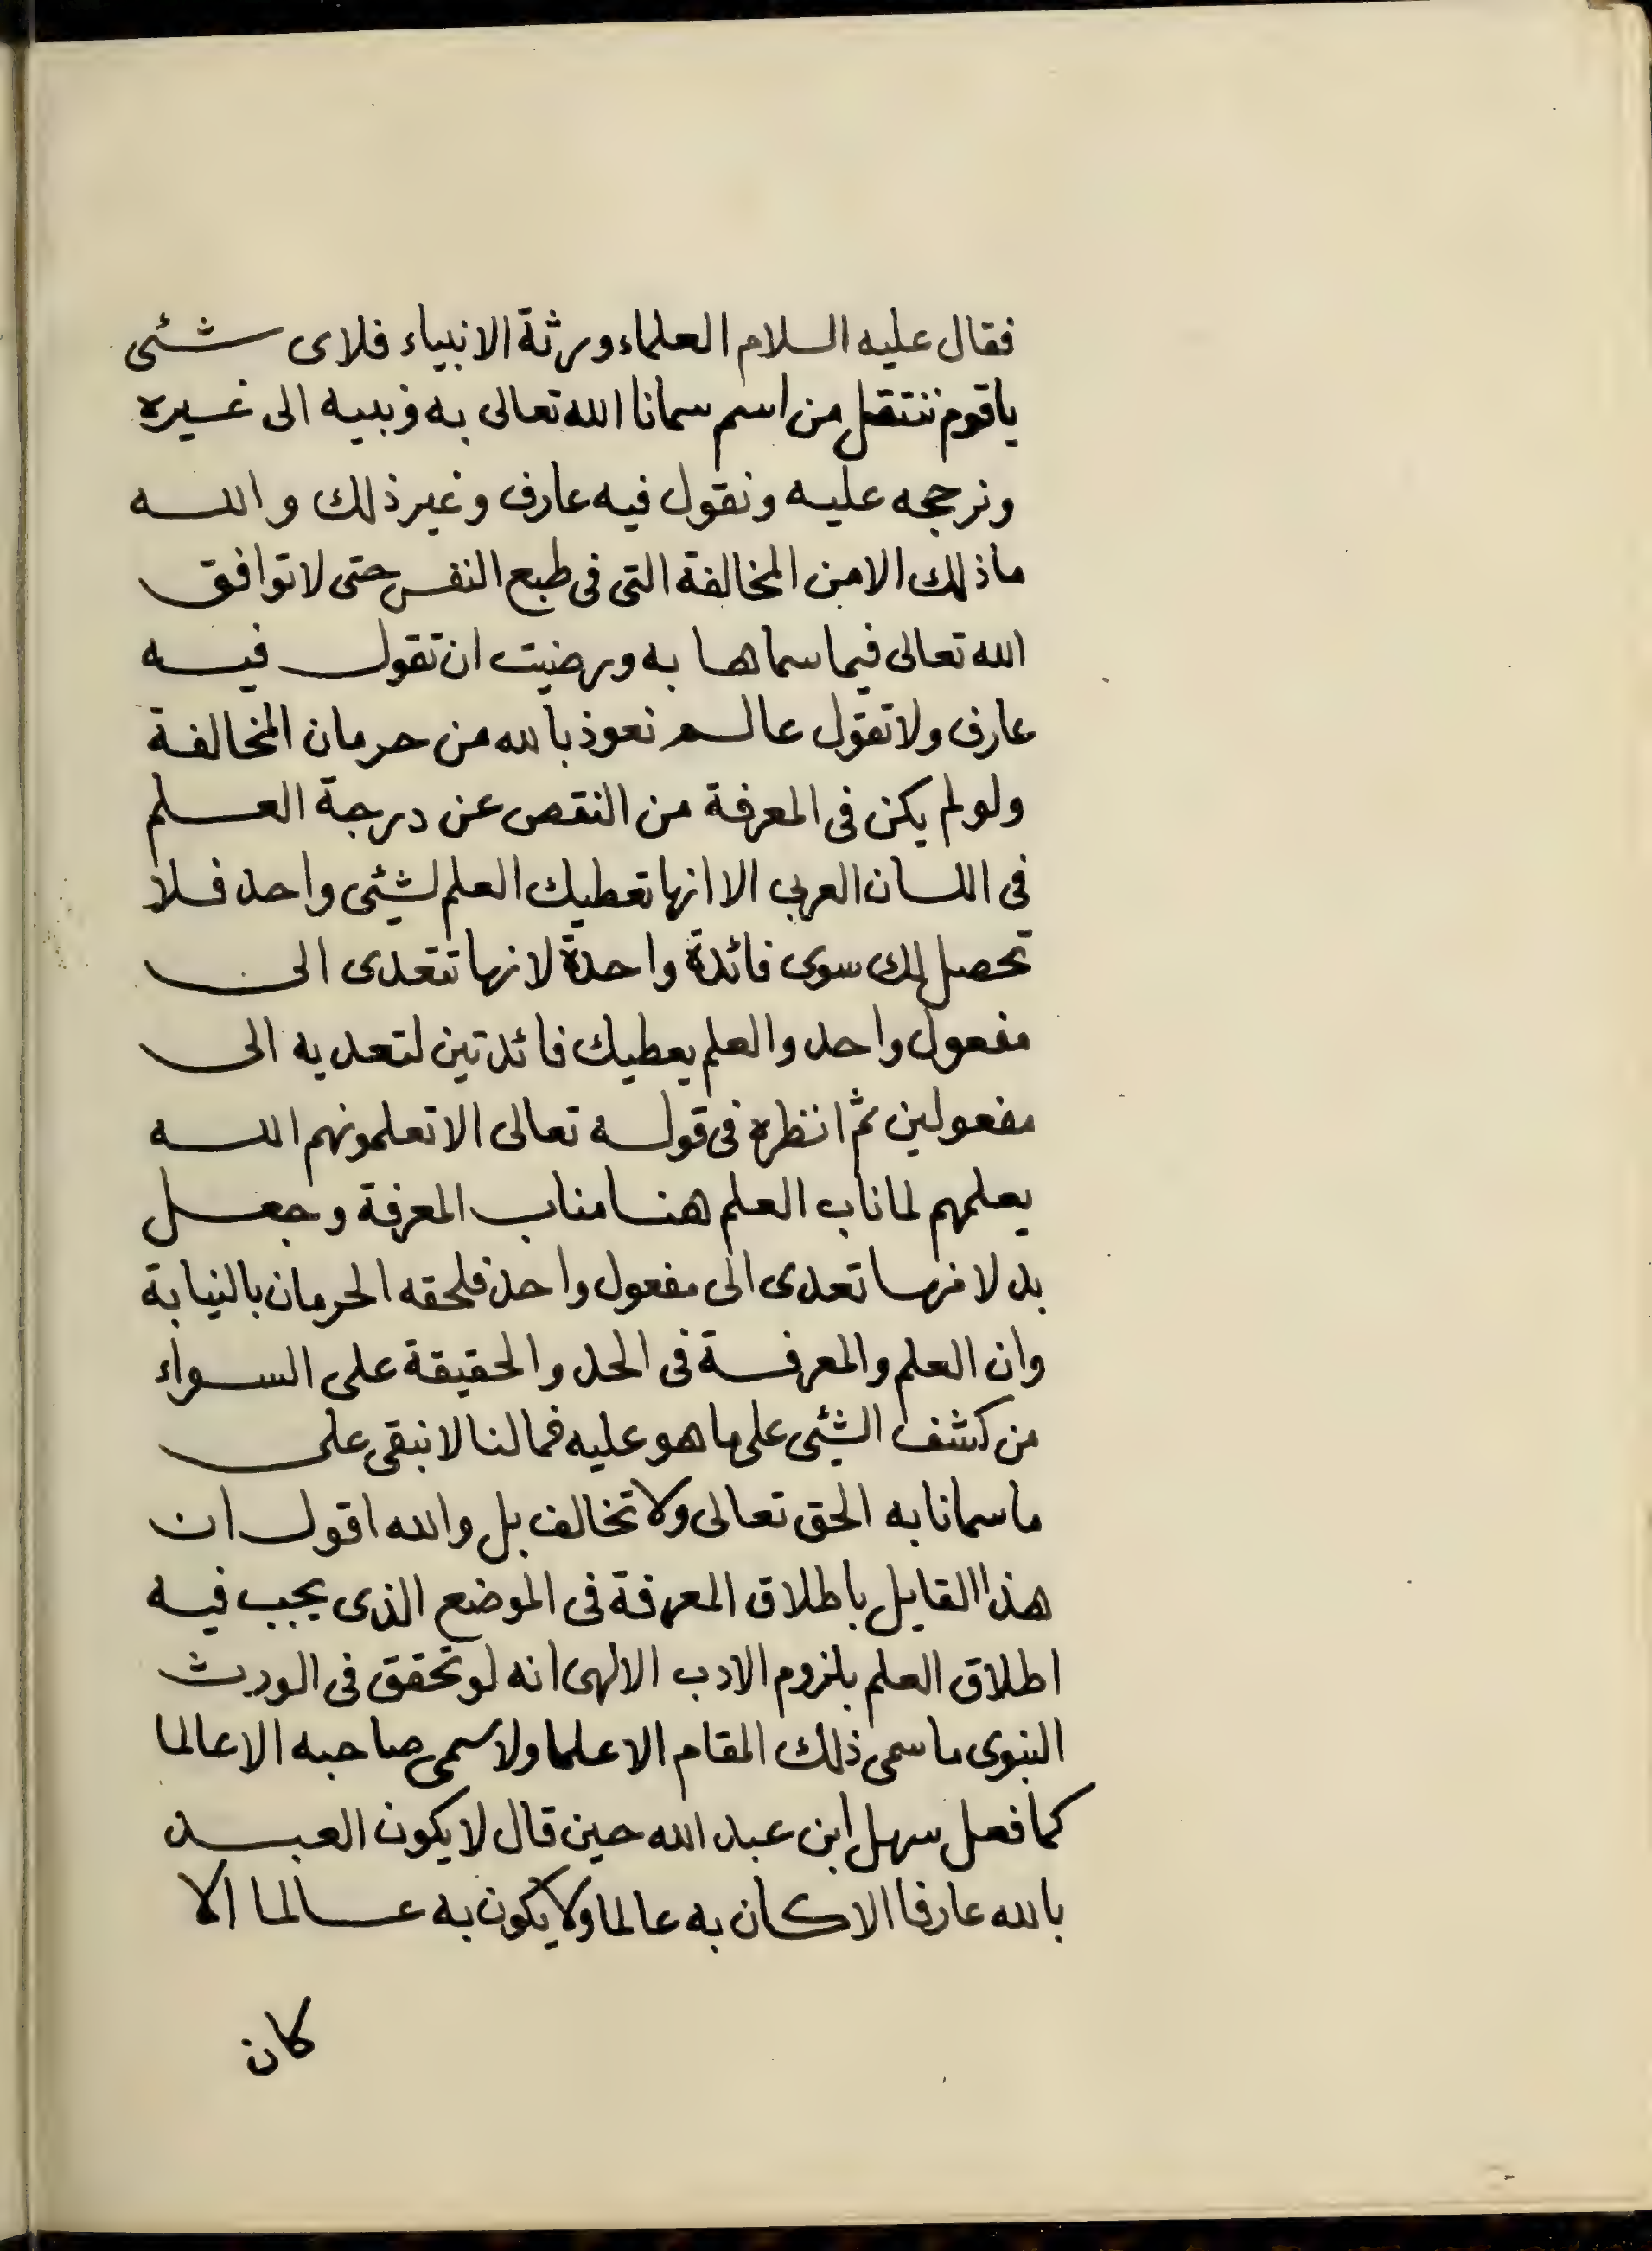 فقال عليه السلام العلماء ورثة الانبياء فلاى شئى
ياقوم ننتقل من اسم سمانا الله تعالى به ونبيه الى غيره
ونرجحه عليه ونقول فيه عارف وغير ذلك والله
ماذلك الامن المخالفة التى فى طبع النفس حتى لاتوافق
الله تعالى فيما سماها به ورضيت ان تقول فيه
عارف ولاتقول عالم نعوذ بالله من حرمان المخالفة
ولولم يكن فى المعرفة من النقص عن درجة العلم
فى اللسان العربى الا انها تعطيك العلم لشئى واحد فلا
تحصل لك سوى فائدة واحدة لانها تتعدى الى
مفعول واحد والعلم يعطيك فائدتين لتعديه الى
مفعولين ثم انظره فى قوله تعالى الاتعلمونهم الله
يعلمهم لماناب العلم هنا مناب المعرفة وجعل
بدلا منها تعدى الى مفعول واحد فلحقه الحرمان بالنيابة
وان العلم والمعرفة فى الحد والحقيقة على السواء
من كشف الشئى على ماهو عليه فمالنا لانبقى على
ماسمانا به الحق تعالى ولا تخالف بل والله اقول ان
هذا القايل باطلاق المعرفة فى الموضع الذى يجب فيه
اطلاق العلم بلزوم الادب الالهى انه لوتحقق فى الورث
النبوى ماسمى ذلك المقام الاعلما ولاسمى صاحبه الاعالما
كمافعل سهل ابن عبد الله حين قال لايكون العبد
بالله عارفا الاكان به عالما ولايكون به عالما الا
كان